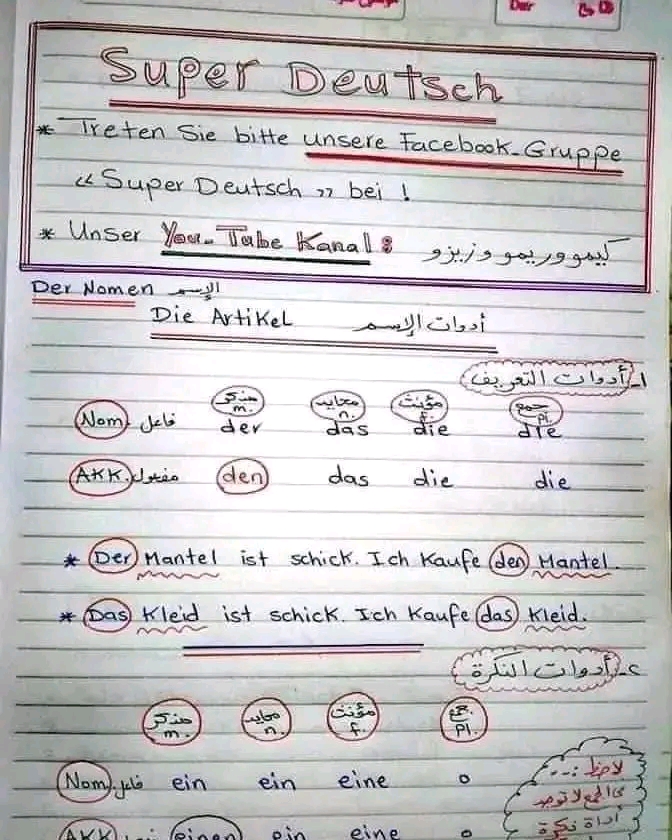 Der
Super Deutsch
* Treten Sie bitte unsere Facebook-Gruppe
« Super Deutsch » bei !
* Unser You-Tube Kanal : كيمو وريمو وزيزو
Der Nomen الإسم
Die Artikel أدوات الإسم
١- أدوات التعريف
مذكر محايد مؤنث جمع
m. n. f. Pl.
Nom. فاعل der das die die
AKK. مفعول den das die die
* Der Mantel ist schick. Ich Kaufe den Mantel.
* Das Kleid ist schick. Ich Kaufe das Kleid.
٢- أدوات النكرة
مذكر محايد مؤنث جمع
m. n. f. Pl.
لاحظ :
Nom. فاعل ein ein eine o
في الجمع لا توجد
أداة نكرة
AKK. einen ein eine o